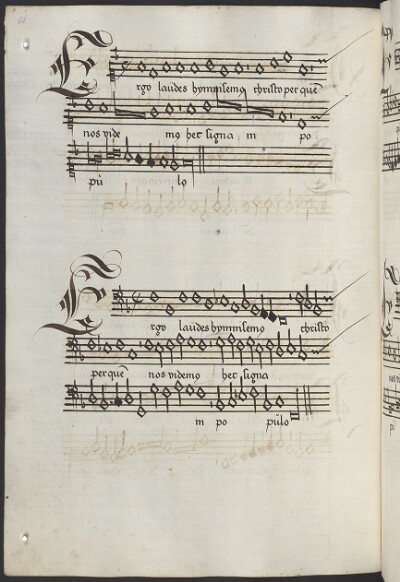 Ergo laudes hymnisemo christo per quē
nos vide mo her signa in po
pu lo
Ergo laudes hymnisemo christo
per quē nos videmo her signa
in po pulo